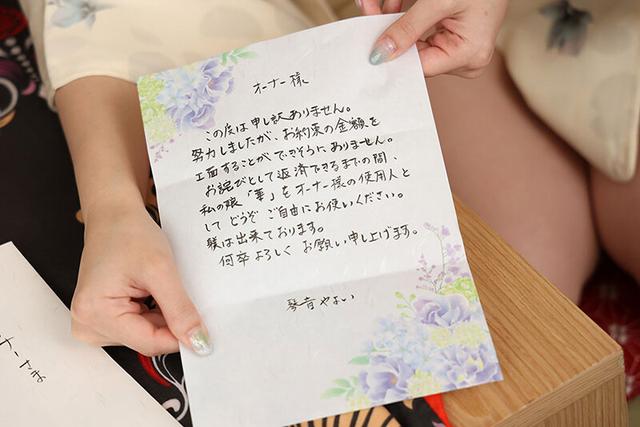 オーナー様
この度は申し訳ありません。
努力しましたが、お約束の金額を
工面することができそうにありません。
お詫びとして返済できるまでの間、
私の娘「華」をオーナー様の使用人と
してどうぞご自由にお使いください。
躾は出来ております。
何卒よろしくお願い申し上げます。
琴音やよい
ナーさま